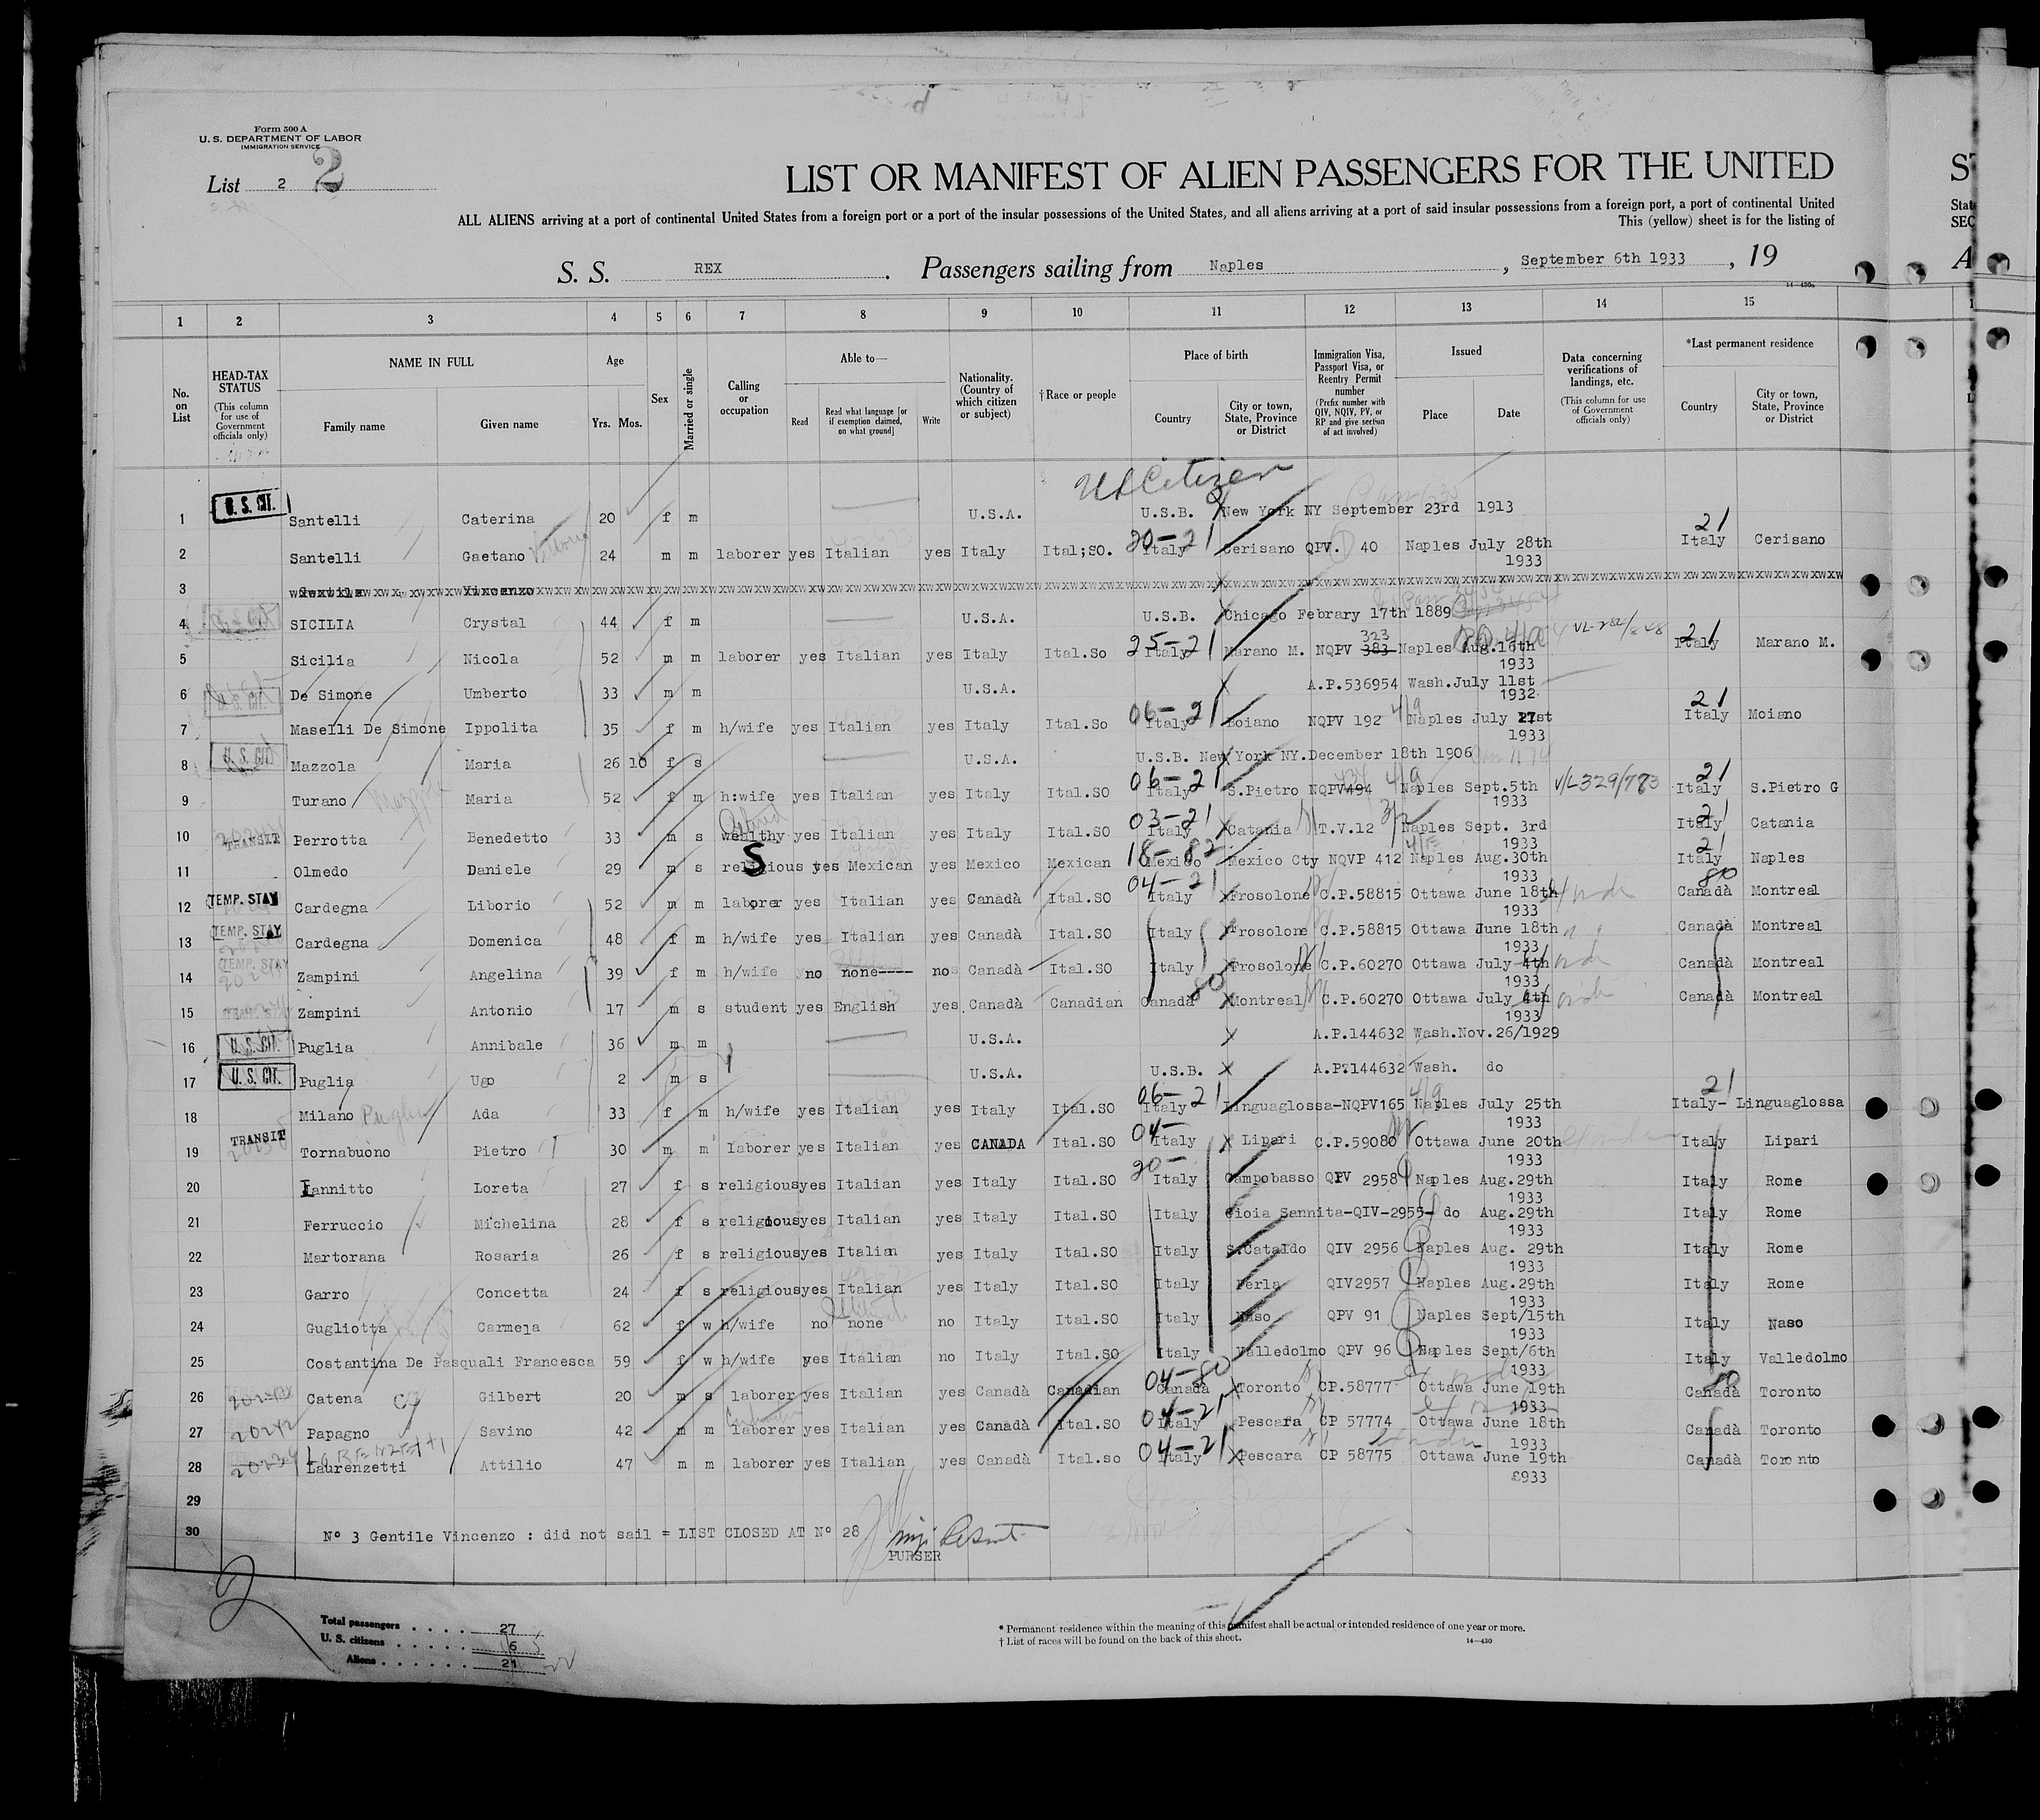 Form 500 A
U. S. DEPARTMENT OF LABOR
IMMIGRATION SERVICE
List 2 2
LIST OR MANIFEST OF ALIEN PASSENGERS FOR THE UNITED
ALL ALIENS arriving at a port of continental United States from a foreign port or a port of the insular possessions of the United States, and all aliens arriving at a port of said insular possessions from a foreign port, a port of continental United
This (yellow) sheet is for the listing of
S. S. REX . Passengers sailing from Naples , September 6th 1933 , 19
1 2 3 4 5 6 7 8 9 10 11 12 13 14 15
No. on List
HEAD-TAX STATUS (This column for use of Government officials only)
NAME IN FULL Family name Given name
Age Yrs. Mos.
Sex
Married or single
Calling or occupation
Able to— Read Read what language [or if exemption claimed, on what ground] Write
Nationality. (Country of which citizen or subject)
†Race or people
Place of birth Country City or town, State, Province or District
Immigration Visa, Passport Visa, or Reentry Permit number (Prefix number with QIV, NQIV, PV, or RP and give section of act involved)
Issued Place Date
Data concerning verifications of landings, etc. (This column for use of Government officials only)
*Last permanent residence Country City or town, State, Province or District
US Citizen
1 U. S. CIT. Santelli Caterina 20 f m U.S.A. U.S.B. New York NY September 23rd 1913
2 Santelli Gaetano 24 m m laborer yes Italian yes Italy Ital;SO. 20-21 Italy Cerisano QPV. 40 Naples July 28th 1933 21 Italy Cerisano
3 Vincenzo
4 SICILIA Crystal 44 f m U.S.A. U.S.B. Chicago Febrary 17th 1889
5 Sicilia Nicola 52 m m laborer yes Italian yes Italy Ital.So 25-21 Italy Marano M. NQPV 383 323 Naples Aug.16th 1933 21 Italy Marano M.
6 U. S. CIT. De Simone Umberto 33 m m U.S.A. A.P.536954 Wash.July 11st 1932
7 Maselli De Simone Ippolita 35 f m h/wife yes Italian yes Italy Ital.So 06-21 Italy Boiano NQPV 192 4/9 Naples July 21st 1933 21 Italy Moiano
8 U. S. CIT. Mazzola Maria 26 10 f s U.S.A. U.S.B. New York NY.December 18th 1906
9 Turano Maria 52 f m h:wife yes Italian yes Italy Ital.SO 06-21 Italy S.Pietro NQPV494 4/9 Naples Sept.5th 1933 V/L329/773 21 Italy S.Pietro G
10 TRANSIT Perrotta Benedetto 33 m s wealthy yes Italian yes Italy Ital.SO 03-21 Italy Catania T.V.12 3/2 Naples Sept. 3rd 1933 21 Italy Catania
11 Olmedo Daniele 29 m s religious S yes Mexican yes Mexico Mexican 18-82 Mexico Mexico Cty NQVP 412 Naples Aug.30th 1933 21 Italy Naples
12 TEMP. STAY Cardegna Liborio 52 m m laborer yes Italian yes Canadà Ital.SO 04-21 Italy Frosolone C.P.58815 Ottawa June 18th 1933 80 Canadà Montreal
13 TEMP. STAY Cardegna Domenica 48 f m h/wife yes Italian yes Canadà Ital.SO Italy Frosolone C.P.58815 Ottawa June 18th 1933 Canadà Montreal
14 TEMP. STAY Zampini Angelina 39 f m h/wife no none---- no Canadà Ital.SO Italy Frosolone C.P.60270 Ottawa July 4th 1933 Canadà Montreal
15 Zampini Antonio 17 m s student yes English yes Canadà Canadian Canadà 80 Montreal C.P.60270 Ottawa July 4th 1933 Canadà Montreal
16 U. S. CIT. Puglia Annibale 36 m m U.S.A. A.P.144632 Wash.Nov.26/1929
17 U. S. CIT. Puglia Ugo 2 m s U.S.A. U.S.B. A.P.144632 Wash. do
18 Milano Puglia Ada 33 f m h/wife yes Italian yes Italy Ital.SO 06-21 Italy Linguaglossa-NQPV165 4/9 Naples July 25th 1933 21 Italy- Linguaglossa
19 TRANSIT Tornabuono Pietro 30 m m laborer yes Italian yes CANADA Ital.SO 04- Italy Lipari C.P.59080 Ottawa June 20th 1933 Italy Lipari
20 Iannitto Loreta 27 f s religious yes Italian yes Italy Ital.SO 20- Italy Campobasso QIV 2958 Naples Aug.29th 1933 Italy Rome
21 Ferruccio Michelina 28 f s religious yes Italian yes Italy Ital.SO Italy Gioia Sannita-QIV-2955- do Aug.29th 1933 Italy Rome
22 Martorana Rosaria 26 f s religious yes Italian yes Italy Ital.SO Italy S.Cataldo QIV 2956 Naples Aug. 29th 1933 Italy Rome
23 Garro Concetta 24 f s religious yes Italian yes Italy Ital.SO Italy Ferla QIV2957 Naples Aug.29th 1933 Italy Rome
24 Gugliotta Carmela 62 f w h/wife no none no Italy Ital.SO Italy Naso QPV 91 Naples Sept/15th 1933 Italy Naso
25 Costantina De Pasquali Francesca 59 f w h/wife yes Italian no Italy Ital.SO Italy Valledolmo QPV 96 Naples Sept/6th 1933 Italy Valledolmo
26 Catena Gilbert 20 m s laborer yes Italian yes Canadà Canadian 04-80 Canadà Toronto CP.58777 Ottawa June 19th 1933 80 Canadà Toronto
27 Papagno Savino 42 m m laborer yes Italian yes Canadà Ital.SO 04-21 Italy Pescara CP 57774 Ottawa June 18th 1933 Canadà Toronto
28 LORENZETTI Laurenzetti Attilio 47 m m laborer yes Italian yes Canadà Ital.so 04-21 Italy Pescara CP 58775 Ottawa June 19th 1933 Canadà Toronto
29
30 Nº 3 Gentile Vincenzo : did not sail = LIST CLOSED AT Nº 28
PURSER
2
Total passengers . . . . 27
U. S. citizens . . . . . 6
Aliens . . . . . . 21
* Permanent residence within the meaning of this manifest shall be actual or intended residence of one year or more.
† List of races will be found on the back of this sheet. 14—430